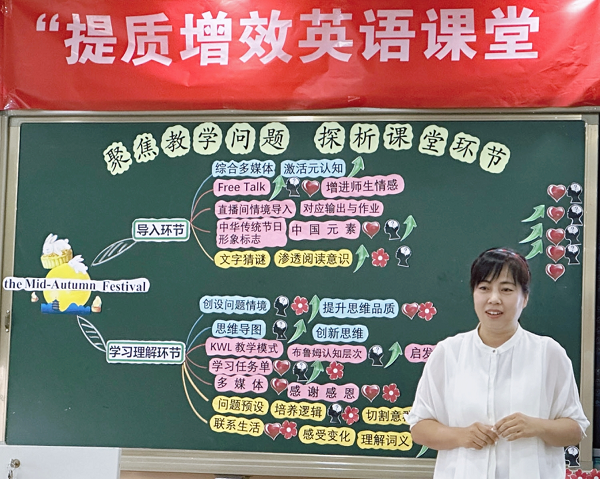 “提质增效英语课堂
聚焦教学问题 探析课堂环节
综合多媒体 激活元认知
Free Talk 增进师生情感
直播间情境导入 对应输出与作业
导入环节
中华传统节日形象标志 中国元素
文字猜谜 渗透阅读意识
the Mid-Autumn Festival
创设问题情境 提升思维品质
思维导图 创新思维
KWL 教学模式 布鲁姆认知层次 启发
学习理解环节
学习任务单
多媒体 感谢感恩
问题预设 培养逻辑 切割意
联系生活 感受变化 理解词义